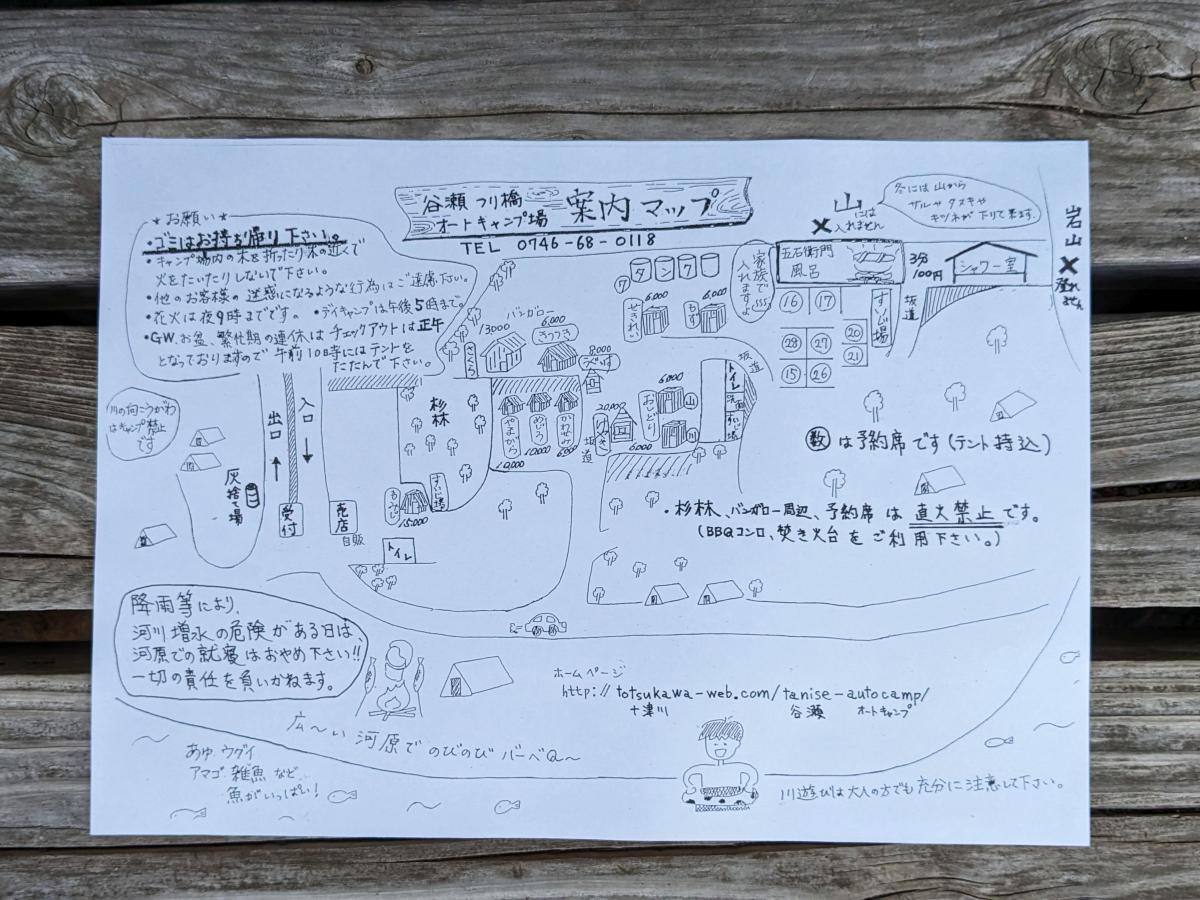 谷瀬つり橋
オートキャンプ場
案内マップ
TEL 0746-68-0118
★お願い★
・ゴミはお持ち帰り下さい。
・キャンプ場内の木を折ったり木の近くで
火をたいたりしないで下さい。
・他のお客様の迷惑になるような行為はご遠慮下さい。
・花火は夜9時までです。 ・デイキャンプは午後5時まで。
・GW、お盆、繁忙期の連休はチェックアウトは正午
となっておりますので午前10時にはテントを
たたんで下さい。
山
には
入れません
冬には山から
サルやタヌキや
キツネが下りて来ます。
岩山
登れません
家族で
入れますよ
五右衛門
風呂
3分
100円
シャワー室
坂道
すいじ場
16 17
28 27 20
21
15 26
タンク
ワ
せきれい
6,000
もず
6,000
バンガロー
13000
さくら
6,000
きつつき
8,000
うぐいす
やまがら
10,000
めじろ
10,000
かわせみ
坂道
20,000
おしどり
6,000
山
川
6,000
坂道
トイレ
洗面
すいじ場
杉林
もみじ
15,000
すいじ場
川の向こうがわ
はキャンプ禁止
です
出口
入口
灰捨て場
受付
売店
自販
トイレ
数は予約席です(テント持込)
・杉林、バンガロー周辺、予約席は直火禁止です。
(BBQコンロ、焚き火台をご利用下さい。)
降雨等により、
河川増水の危険がある日は、
河原での就寝はおやめ下さい!!
一切の責任を負いかねます。
ホームページ
http://totsukawa-web.com/tanise-autocamp/
十津川 谷瀬 オートキャンプ
広〜い河原でのびのびバーベQ〜
あゆ、ウグイ
アマゴ、雑魚など
魚がいっぱい!
川遊びは大人の方でも充分に注意して下さい。